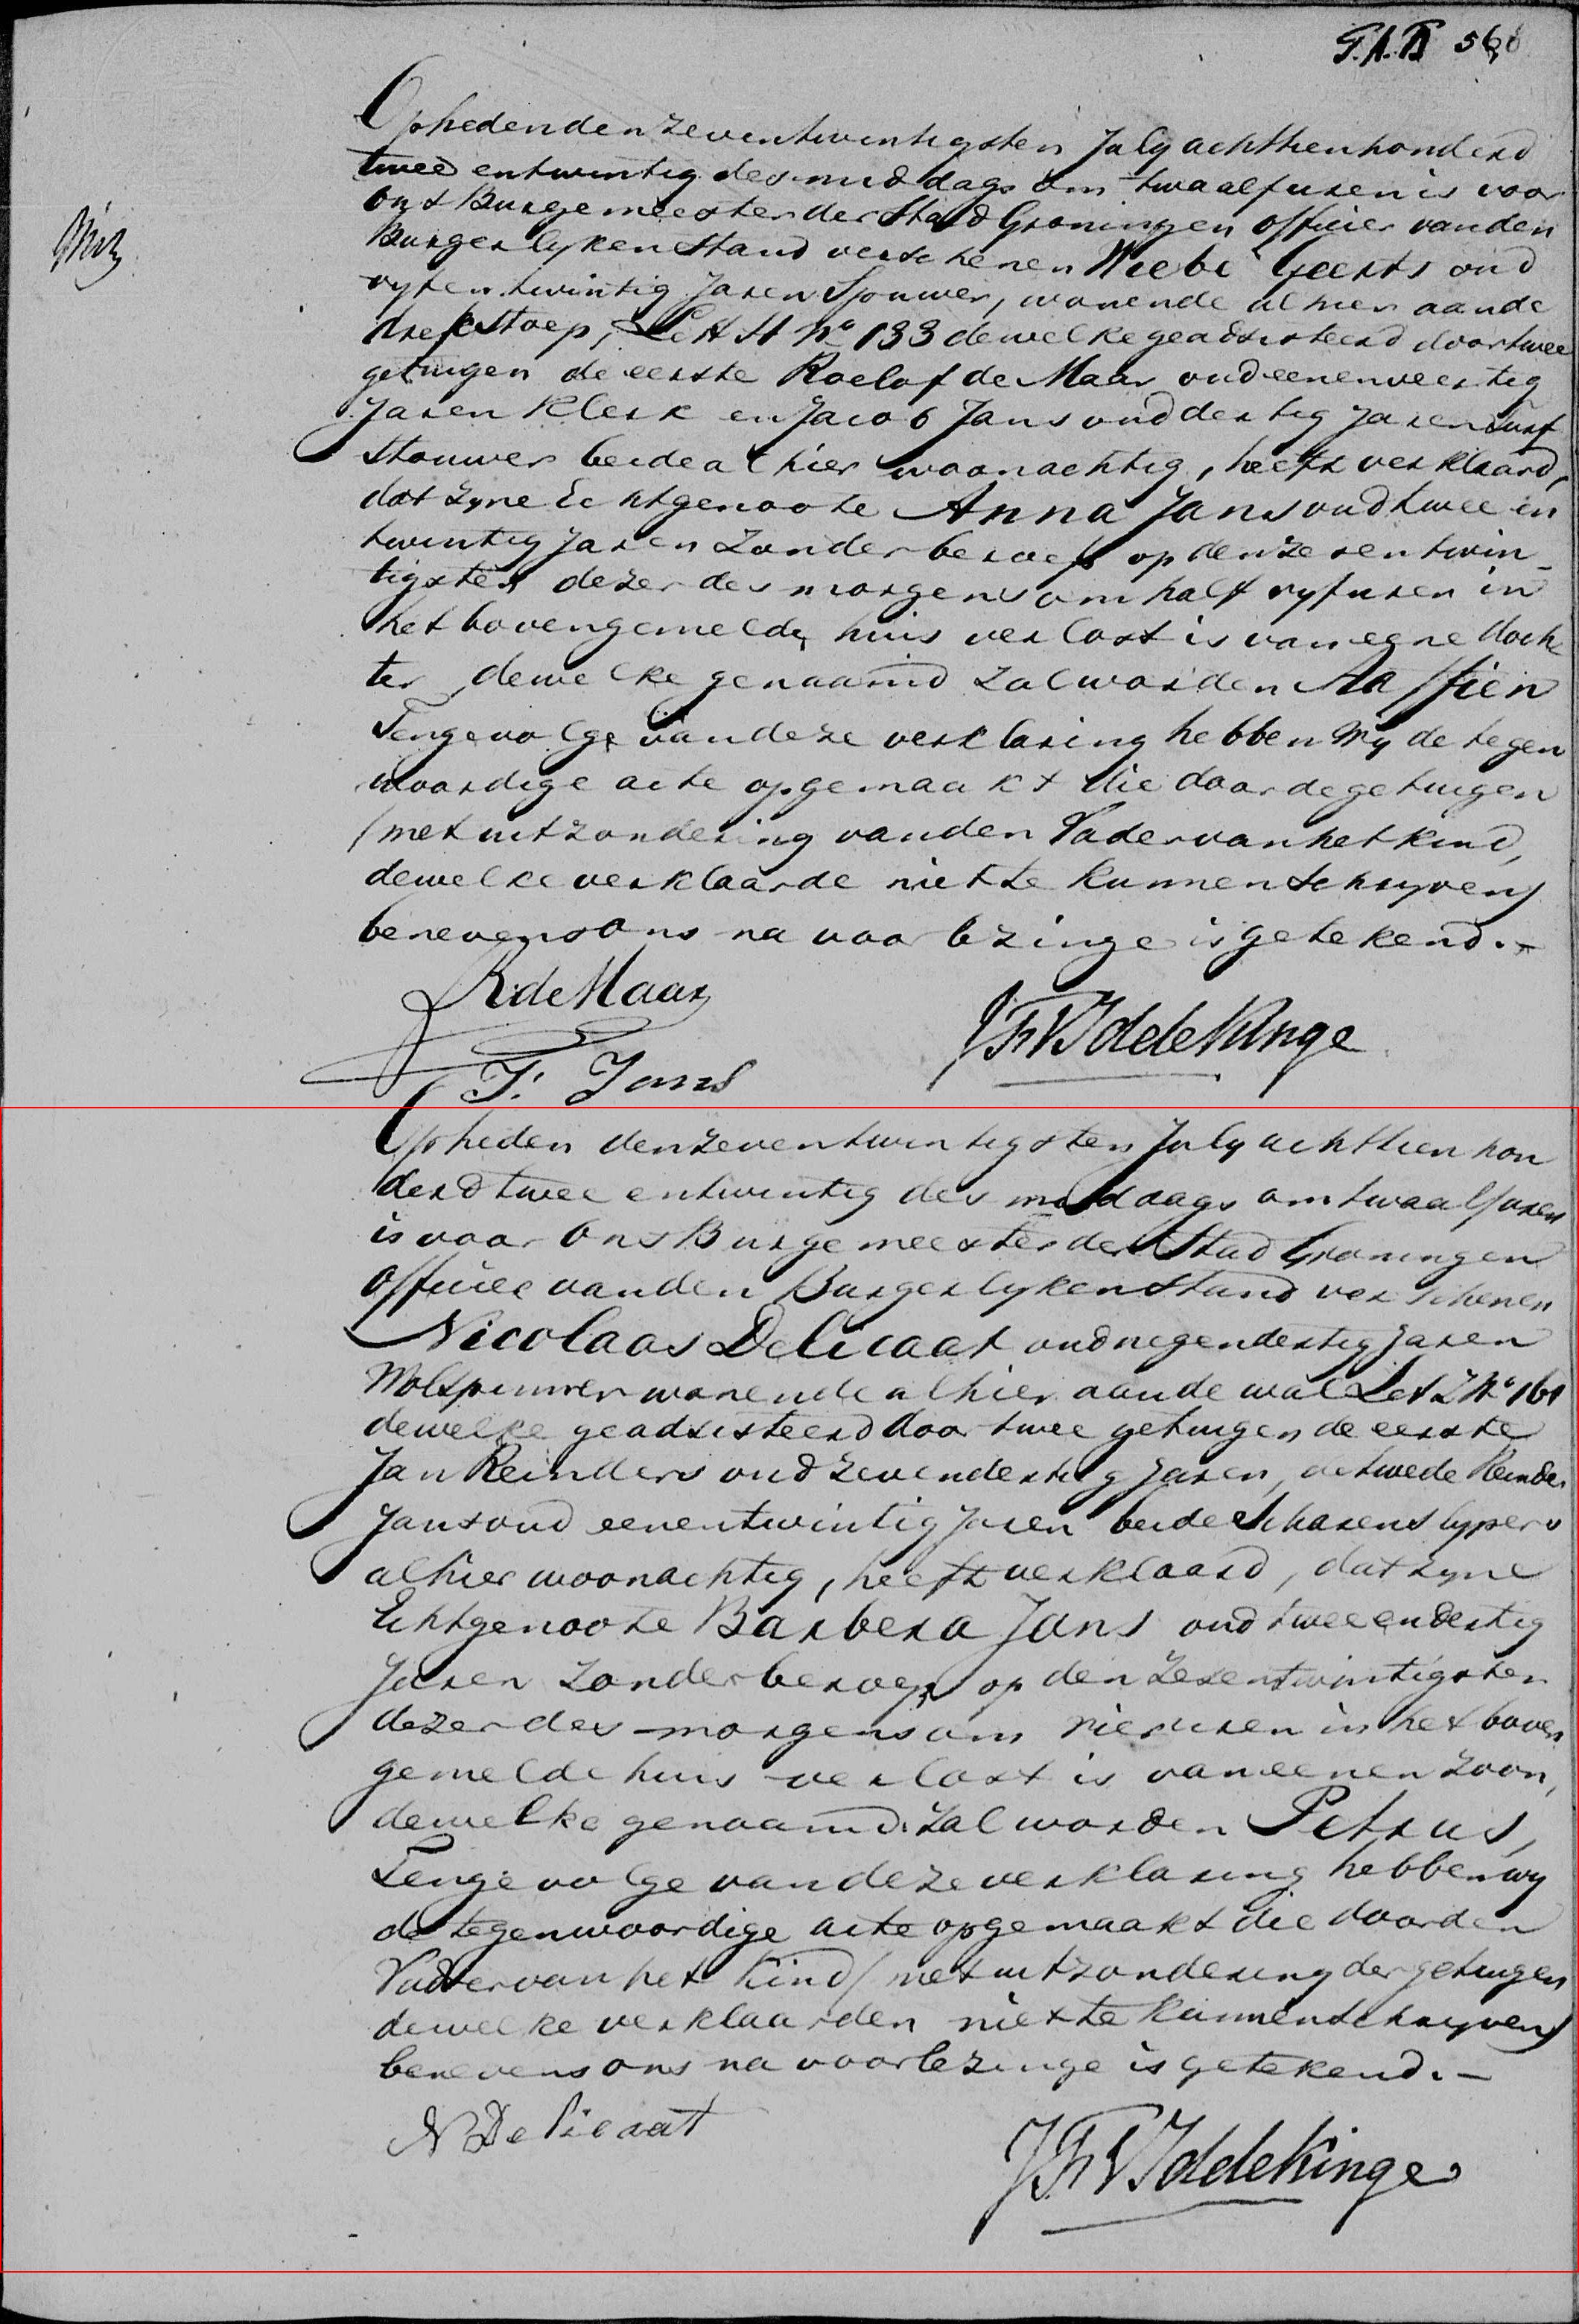 F.A.B 566
Op heden den zeventwintigsten July achttienhonderd
twee en twintig des middags om twaalf uren is voor
Ons Burgemeester der Stad Groningen officier van den
Burgerlyken Stand verschenen Wiebe Geerts oud
vyf en twintig Jaren Sjouwer, wonende alhier aan de
stoep, Lett H No 133 dewelke geadsisteerd door twee
getuigen de eerste Roelof de Maar oud eenenveertig
Jaren Klerk en Jacob Jans oud dertig Jaren Turf
stouwer beide alhier woonachtig, heeft verklaard,
dat zyne Echtgenoote Anna Jans oud twee en
twintig Jaren zonder beroep op den zesentwin-
tigsten dezer des morgens om half vyf uren in
het bovengemelde huis verlost is van eene doch
ter dewelke genaamd zal worden Aaffien
Tengevolge van deze verklaring hebben Wy de tegen
woordige acte opgemaakt die door de getuigen
(met uitzondering van den Vader van het kind,
dewelke verklaarde niet te kunnen schryven)
benevens ons na voorlezinge is getekend.-
R de Maar
JFV Iddekinge
J: Jans
Op heden den zeventwintigsten July achttien hon
derd twee en twintig des middags om twaalf uren
is voor Ons Burgemeester der Stad Groningen
Officier van den Burgerlyken Stand verschenen
Nicolaas Delicaat oud negendertig Jaren
Wolspinner wonende alhier aan de wal Let Z No 161
dewelke geadsisteerd door twee getuigen de eerste
Jan Reinders oud zevendertig Jaren, de twede Reinder
Jans oud eenentwintig Jaren beide Scharenslypers
alhier woonachtig, heeft verklaard, dat zyne
Echtgenoote Barbera Jans oud twee en dertig
Jaren zonder beroep op den zesentwintigsten
dezer des morgens om vier uren in het boven
gemelde huis verlost is van eenen zoon,
dewelke genaamd zal worden Petrus,
Tengevolge van deze verklaring hebben wy
de tegenwoordige acte opgemaakt die door den
Vader van het Kind (met uitzondering der getuigen
dewelke verklaarden niet te kunnen schryven)
benevens ons na voorlezinge is getekend.-
N Delicaat
JFV Iddekinge